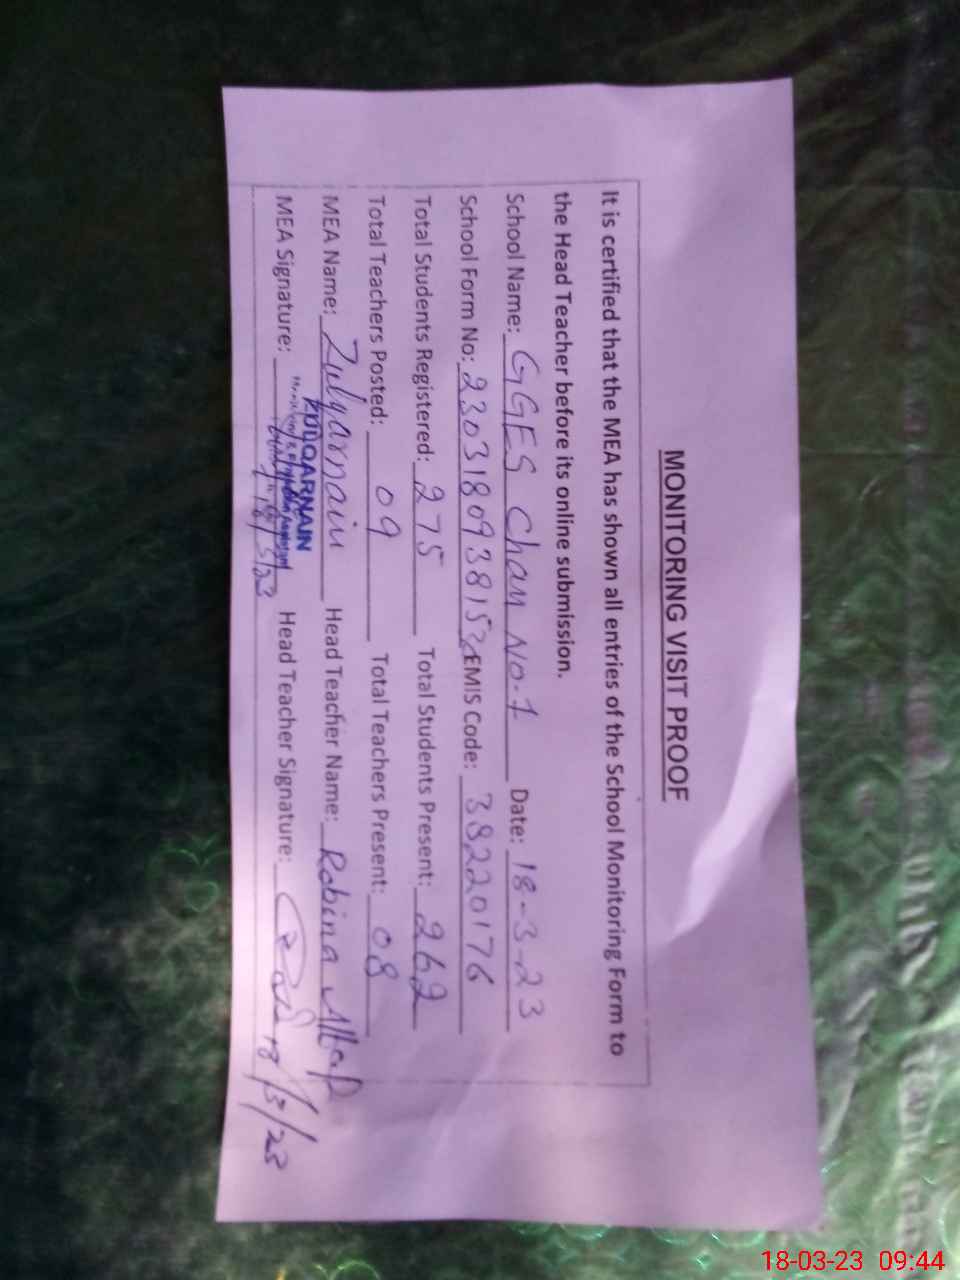 MONITORING VISIT PROOF
It is certified that the MEA has shown all entries of the School Monitoring Form to
the Head Teacher before its online submission.
School Name: GGES Chan No.1 Date: 18-3-23
School Form No: 2303180938152 EMIS Code: 38220176
Total Students Registered: 275 Total Students Present: 262
Total Teachers Posted: 09 Total Teachers Present: 08
MEA Name: Zulqarnain Head Teacher Name: Robina Altaf
ZULQARNAIN
MEA Signature: 18/3/23 Head Teacher Signature: 18/3/23
18-03-23 09:44